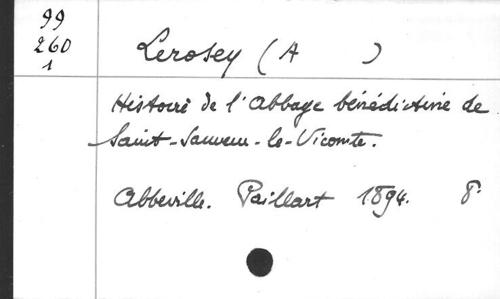 99
260
1
Lerosey (A )
Histoire de l'Abbaye bénédictine de
Saint-Sauveur-le-Vicomte.
Abbeville. Paillart 1894. 8°